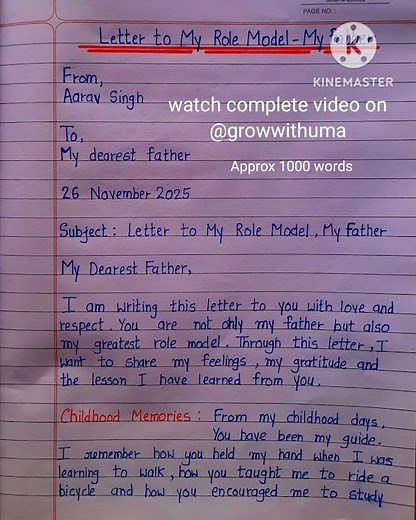 PAGE NO.:
Letter to My Role Model - My
KINEMASTER
From,
Aarav Singh
watch complete video on
@growwithuma
To,
My dearest father
Approx 1000 words
26 November 2025
Subject : Letter to My Role Model, My Father
My Dearest Father,
I am writing this letter to you with love and
respect. You are not only my father but also
my greatest role model. Through this letter, I
want to share my feelings, my gratitude and
the lesson I have learned from you.
Childhood Memories : From my childhood days,
You have been my guide.
I remember how you held my hand when I was
learning to walk, how you taught me to ride a
bicycle and how you encouraged me to study